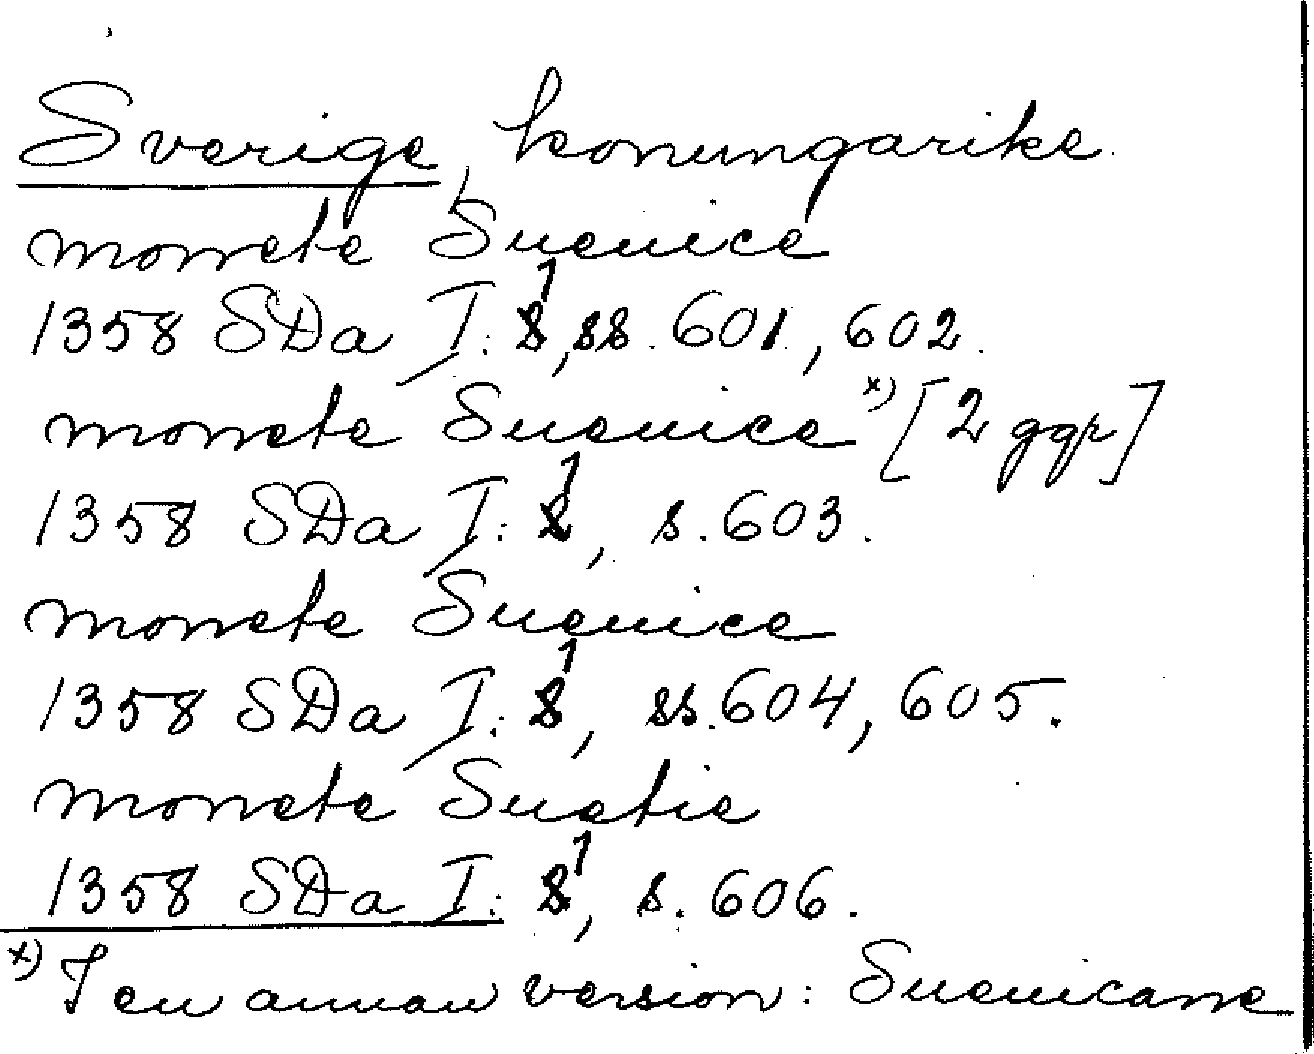 Sverige, konungarike.
monete Suenice
1358 SDa I: 1, ss. 601, 602.
monete Suenice x) [2 ggr]
1358 SDa I: 1, s. 603.
monete Suenice
1358 SDa I: 1, ss. 604, 605.
monete Suetie
1358 SDa I: 1, s. 606.
x) I en annan version: Suenicane